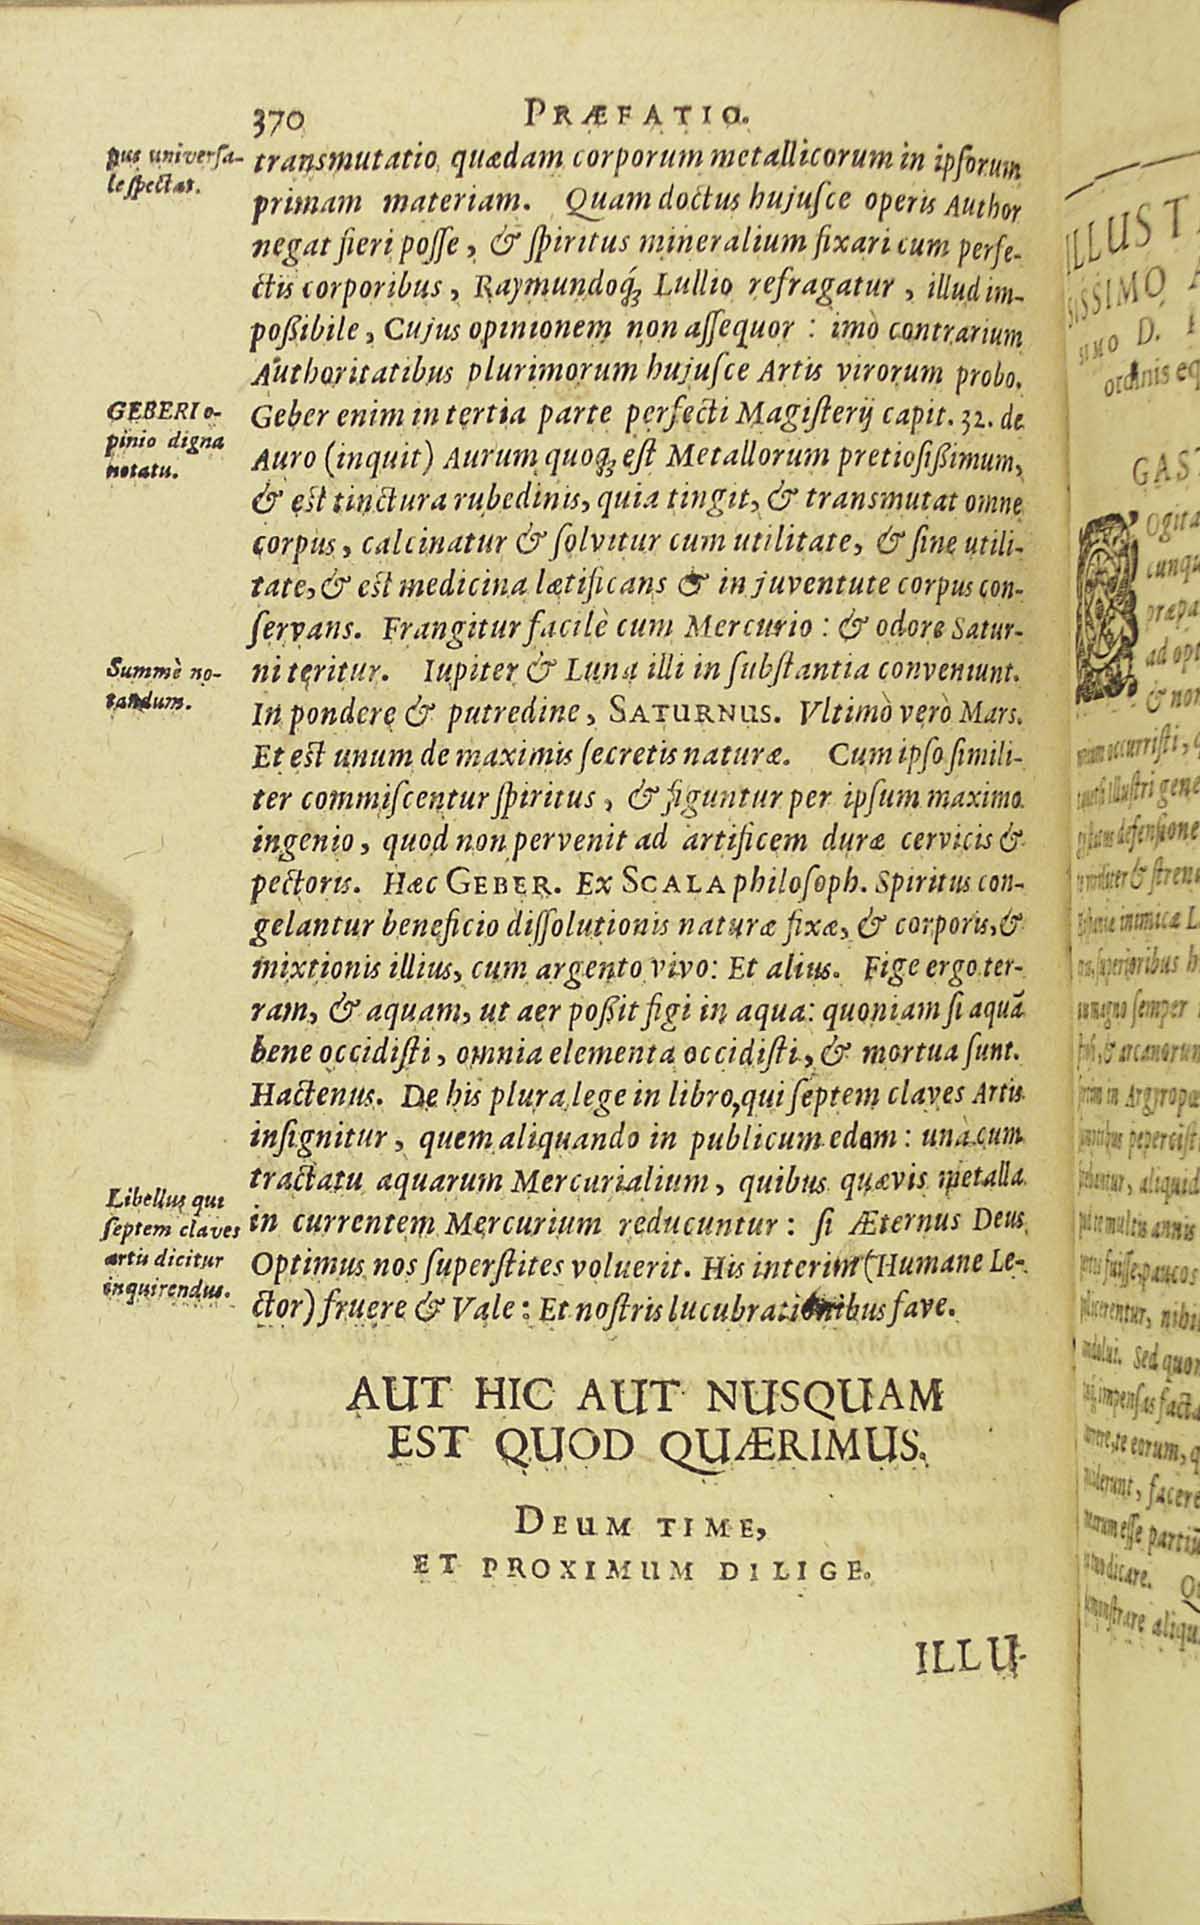 370 PRÆFATIO.
pus universa-
le spectat.
transmutatio quædam corporum metallicorum in ipsorum
primam materiam. Quam doctus hujusce operis Author
negat fieri posse, & spiritus mineralium fixari cum perfe-
ctis corporibus, Raymundoq́ꝫ Lullio refragatur, illud im-
poßibile, Cujus opinionem non assequor: imò contrarium
Authoritatibus plurimorum hujusce Artis virorum probo.
GEBERI o-
pinio digna
notatu.
Geber enim in tertia parte perfecti Magisterij capit. 32. de
Auro (inquit) Aurum quoqꝫ est Metallorum pretiosißimum,
& est tinctura rubedinis, quia tingit, & transmutat omne
corpus, calcinatur & solvitur cum utilitate, & sine utili-
tate, & est medicina lætificans & in juventute corpus con-
servans. Frangitur facilè cum Mercurio: & odore Satur-
Summè no-
tandum.
ni teritur. Iupiter & Luna illi in substantia conveniunt.
In pondere & putredine, SATURNUS. Vltimò verò Mars.
Et est unum de maximis secretis naturæ. Cum ipso simili-
ter commiscentur spiritus, & figuntur per ipsum maximo
ingenio, quod non pervenit ad artificem duræ cervicis &
pectoris. Hæc GEBER. Ex SCALA philosoph. Spiritus con-
gelantur beneficio dissolutionis naturæ fixæ, & corporis, &
mixtionis illius, cum argento vivo: Et alius. Fige ergo ter-
ram, & aquam, ut aer poßit figi in aqua: quoniam si aquã
bene occidisti, omnia elementa occidisti, & mortua sunt.
Hactenus. De his plura lege in libro, qui septem claves Artis
insignitur, quem aliquando in publicum edam: unà cum
tractatu aquarum Mercurialium, quibus quævis metalla
Libellus qui
septem claves
artis dicitur
inquirendus.
in currentem Mercurium reducuntur: si Æternus Deus
Optimus nos superstites voluerit. His interim (Humane Le-
ctor) fruere & Vale: Et nostris lucubrationibus fave.
AUT HIC AUT NUSQUAM
EST QUOD QUÆRIMUS.
DEUM TIME,
ET PROXIMUM DILIGE.
ILLU-
ILLUST
SISSIMO A
SIMO D.
ordinis eq
GAST
Ogita
cunqu
præpa
ad opt
& non